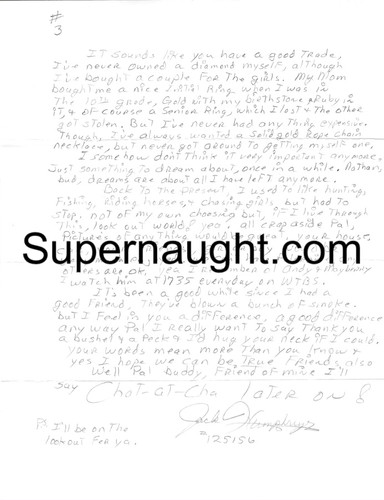 #
3
It sounds like you have a good Trade,
I've never owned a diamond myself, although
I've bought a couple For The girls. My Mom
bought me a nice Initial Ring when I was in
The 10th grade, Gold with my birthstone a Ruby in
it, & of course a Senior Ring, which I lost & the other
got stolen. But I've never had any Thing expensive.
Though, I've always wanted a Solid gold Rope Chain
necklace, but never got around to getting myself one,
I somehow dont Think it very important anymore.
Just something to dream about, once in a while. Nathan,
bud, dreams are about all I have left anymore.
Back to the present, I used to like hunting,
Fishing, Riding horses & chasing girls, but had to
stop, not of my own choosing but, if I live Through
This, look out world! yeo, all crap aside Pal,
Pictures of anything would be great, your house,
Supernaught.com
others are ok, yea I remember ol Andy & Mayberry
I watch him at 1735 everyday on WTBS.
It's been a good while since I had a
good friend, They've blown a bunch of smoke.
but I Feel in you a difference, a good difference
any way Pal I Really want to Say Thank you
a bushel & a Peck & I'd hug your neck if I could.
your words mean more Than you know &
yes I hope we can be True Friends also
Well Pal, buddy, Friend of mine I'll
say Chat-at-Cha later on &
Jack Humphreys
#125156
Ps I'll be on The
lookout For ya.